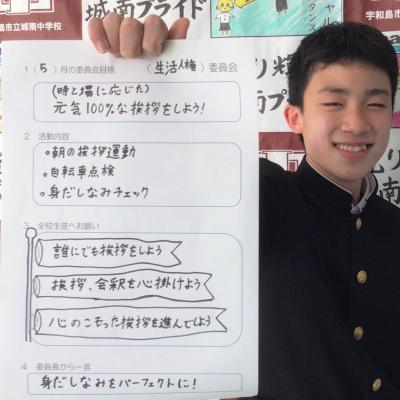 島市立城南中学校
城南プライド
宇和島市
1 (5) 月の委員会目標 (生活人権) 委員会
(時と場に応じた)
元気100%な挨拶をしよう!
2 活動内容
○朝の挨拶運動
○自転車点検
○身だしなみチェック
3 全校生徒へお願い
誰にでも挨拶をしよう
挨拶、会釈を心掛けよう
心のこもった挨拶を進んでしよう
4 委員長から一言
身だしなみをパーフェクトに!